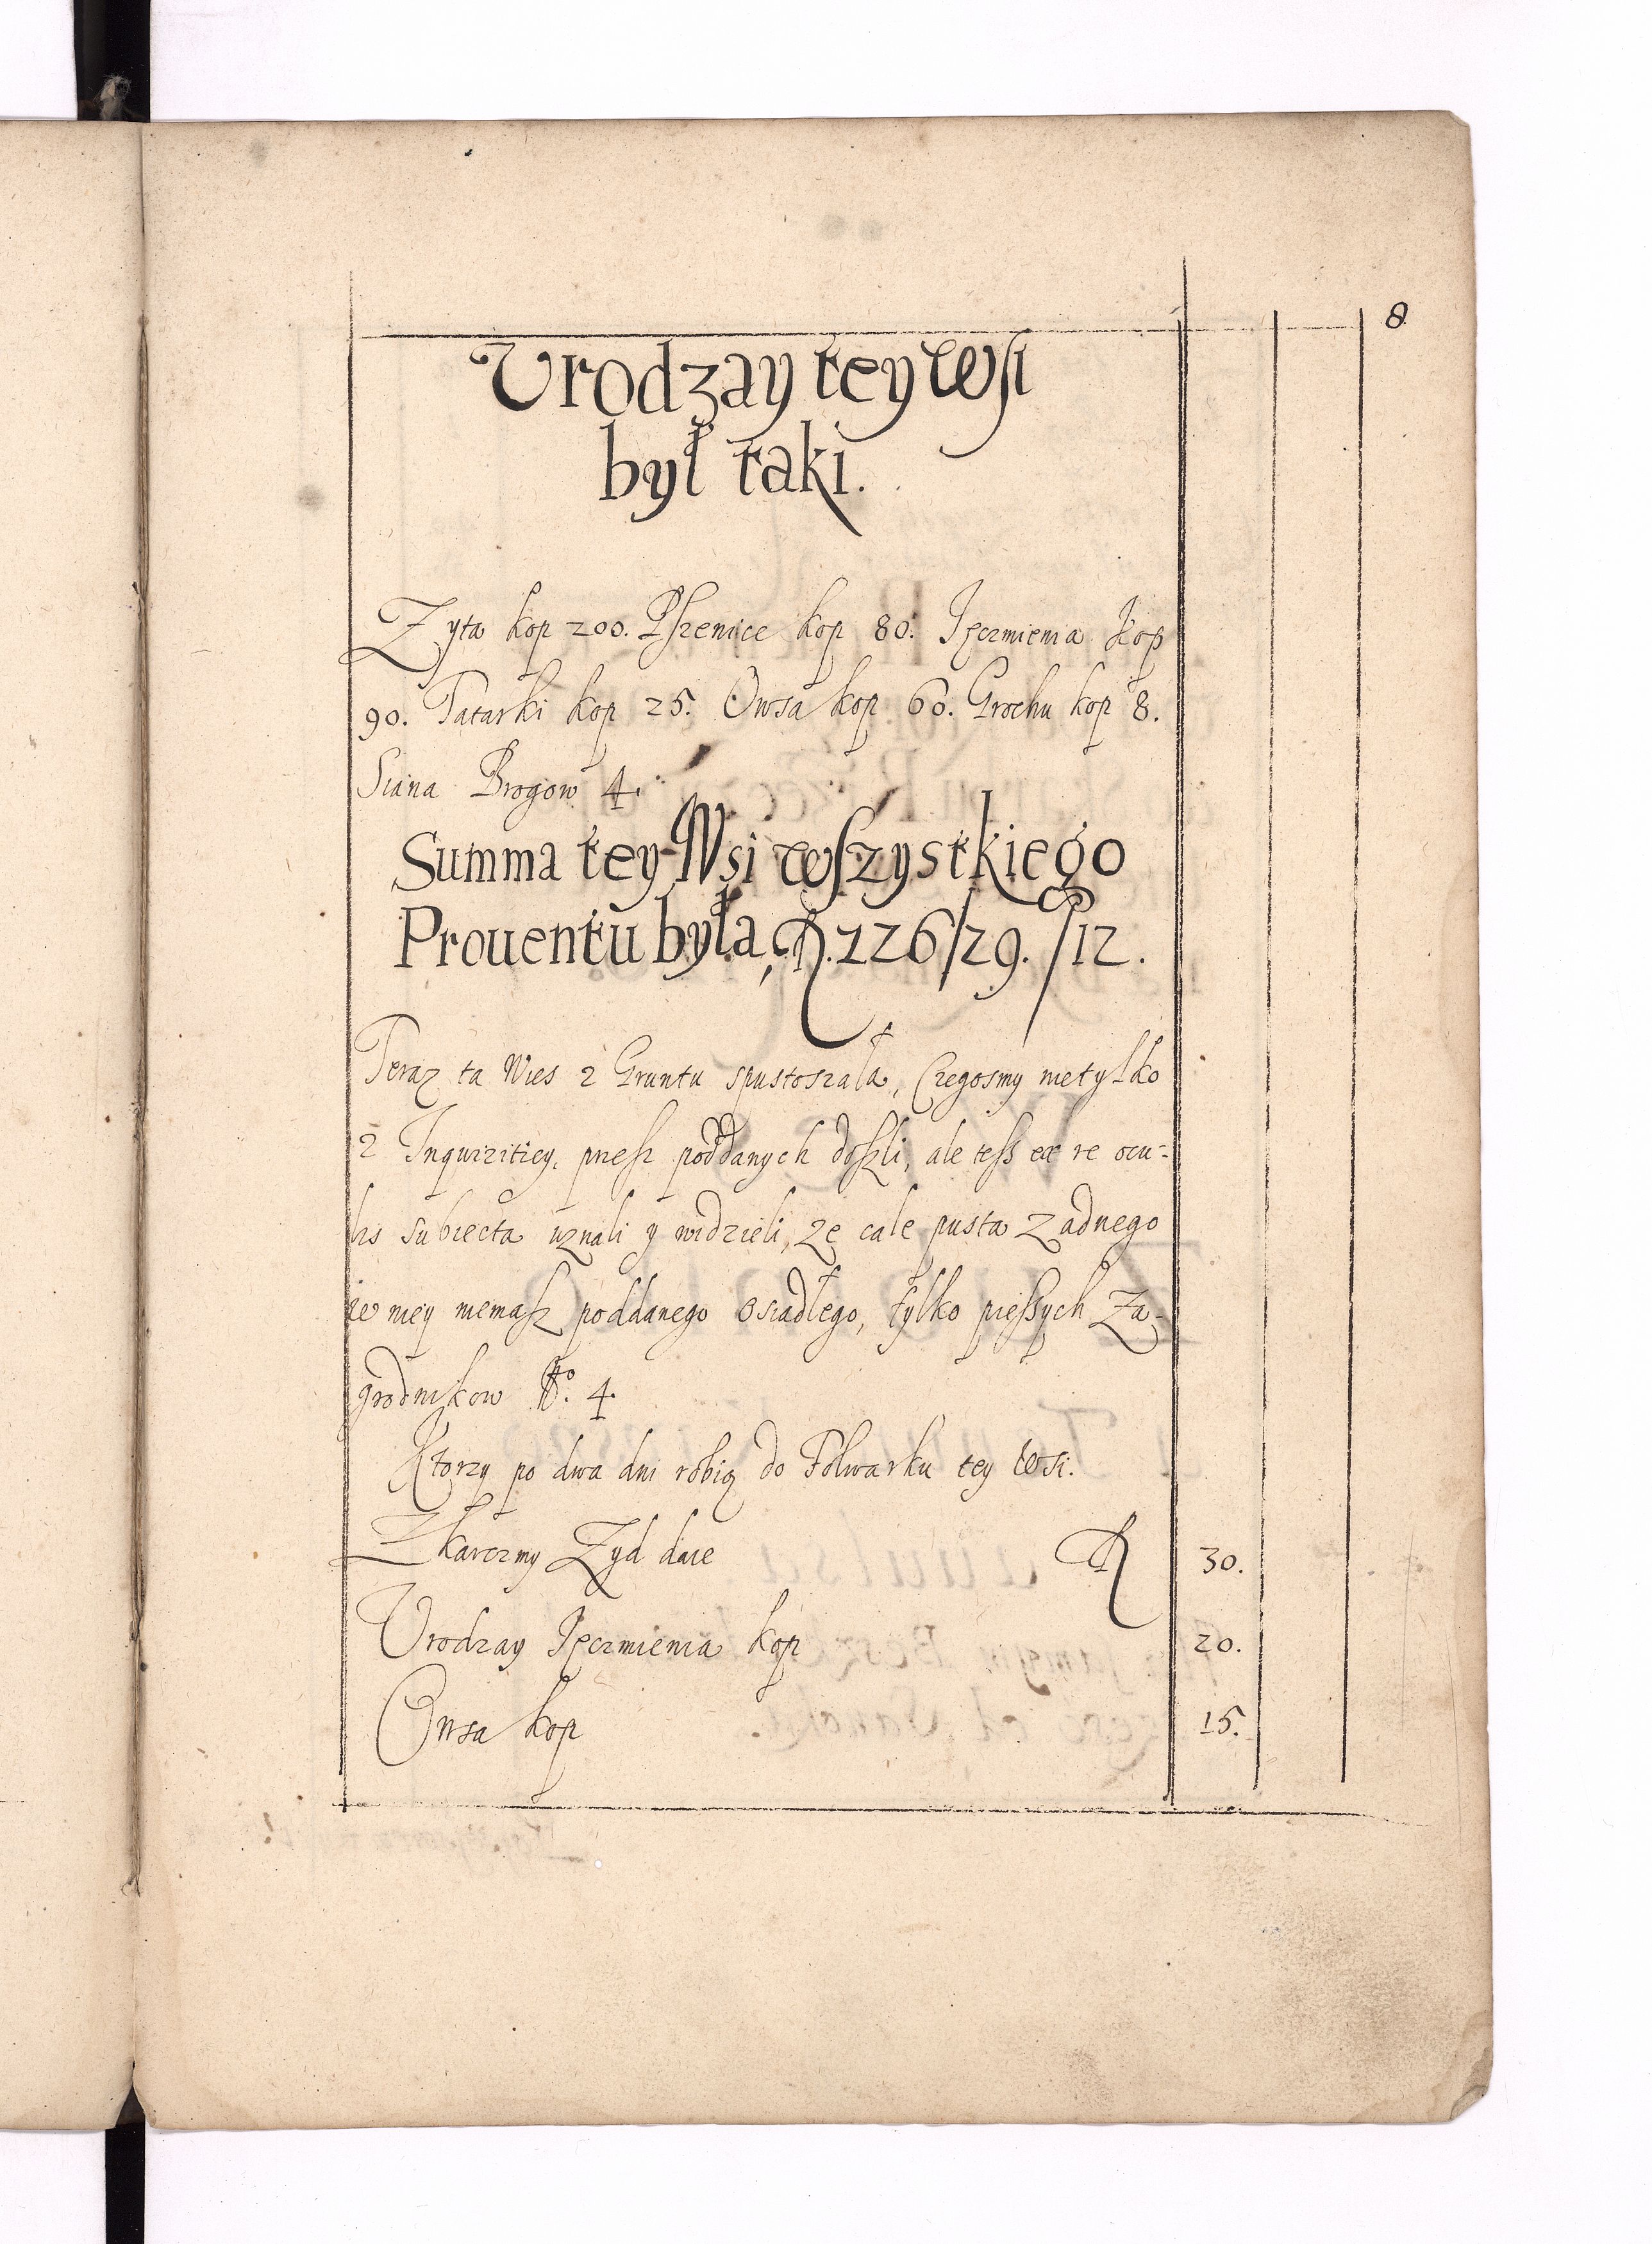 8
Vrodzay tey wsi
był taki.
Zyta kop 200. Pszenice kop 80. Jęczmienia kop
90. Tatarki kop 25. Owsa kop 60. Grochu kop 8.
Siana Brogow 4.
Summa tey Wsi wszystkiego
Prouentu była, 226/29./12.
Teraz ta Wies z Gruntu spustoszała, Czegosmy nietylko
z Inquizitiey, przesz poddanych doszli, ale tesz ex re ocu-
lis subiecta uznali y widzieli, ze cale pusta zadnego
w niey niemasz poddanego osiadłego, tylko pieszych Za-
grodnikow No. 4.
Ktorzy po dwa dni robią do Folwarku tey wsi.
Z karczmy Zyd daie 30.
Vrodzay Jęczmienia kop 20.
Owsa kop 15.